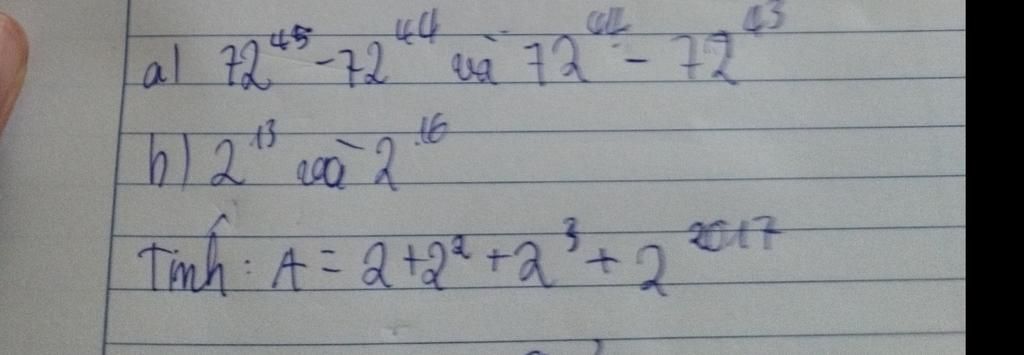 a) 72^45 - 72^44 và 72^44 - 72^43
b) 2^13 và 2^16
Tính: A = 2 + 2^2 + 2^3 + 2^2017